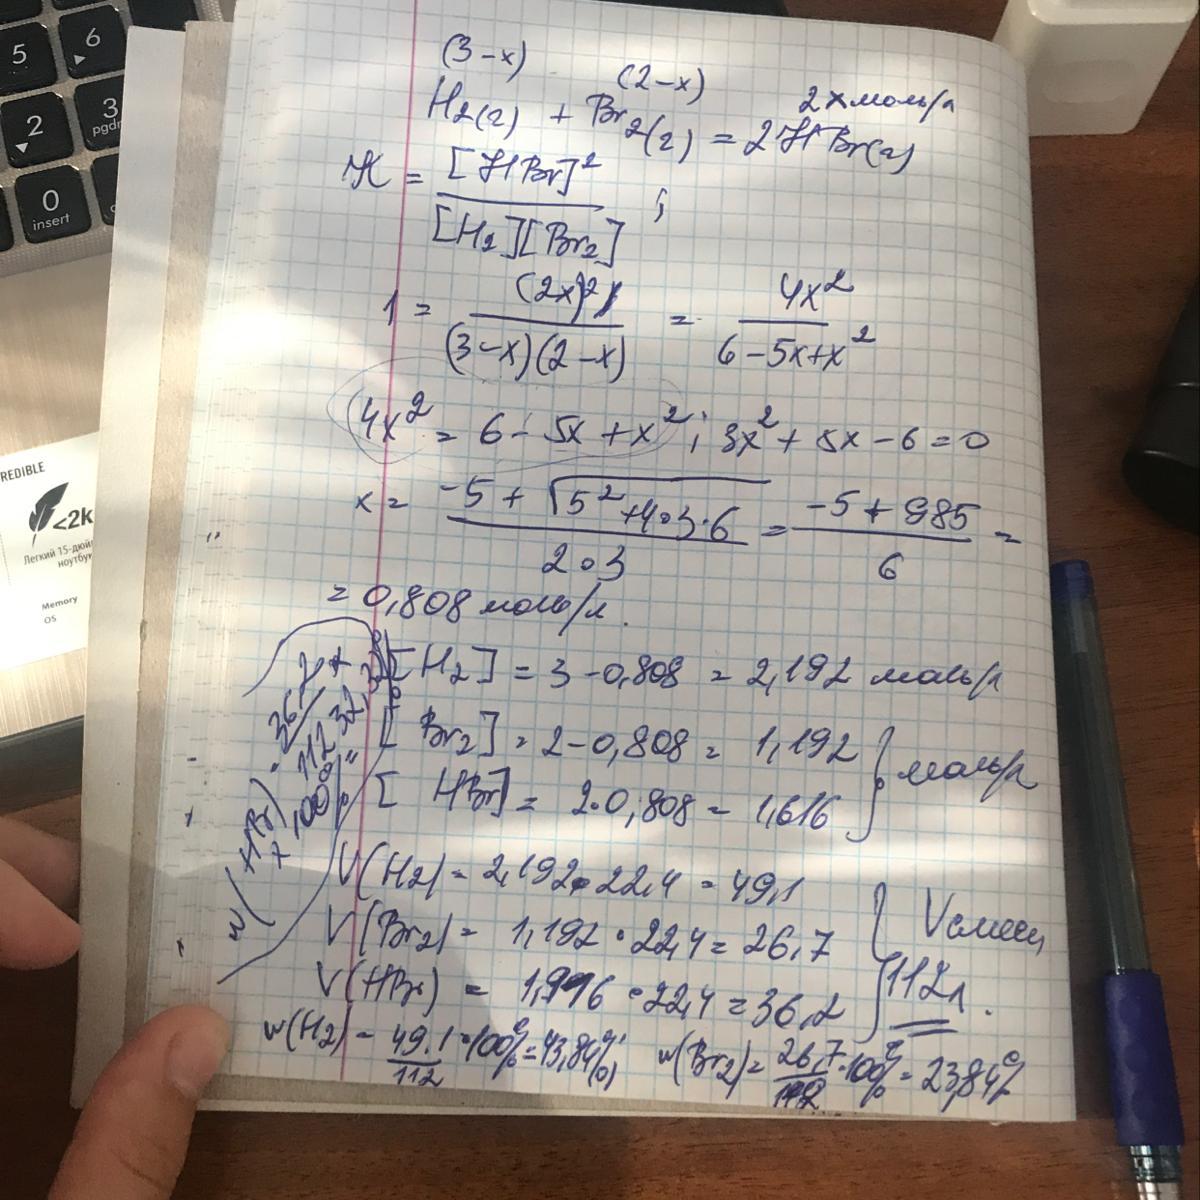 5
6
2
3
pgdn
0
insert
REDIBLE
<2k
Легкий 15-дюйм
ноутбук
Memory
OS
(3-x) (2-x) 2x моль/л
H2(г) + Br2(г) = 2HBr(г)
K = [HBr]² / [H2][Br2] ;
1 = (2x)² / (3-x)(2-x) = 4x² / 6-5x+x²
4x² = 6-5x+x²; 3x²+5x-6=0
x = -5+√5²+4·3·6 / 2·3 = -5+9,85 / 6 =
= 0,808 моль/л.
[H2] = 3-0,808 = 2,192 моль/л
[Br2] = 2-0,808 = 1,192 } моль/л
[HBr] = 2·0,808 = 1,616
V(H2) = 2,192·22,4 = 49,1
V(Br2) = 1,192·22,4 = 26,7 } Vсмеси
V(HBr) = ·22,4 = 36,2 112л.
w(H2) = 49.1/112 ·100% = 43,84%; w(Br2) = 26,7/112 ·100% = 23,84%
w(HBr) = 36,2/112 × 100% = 32,32%